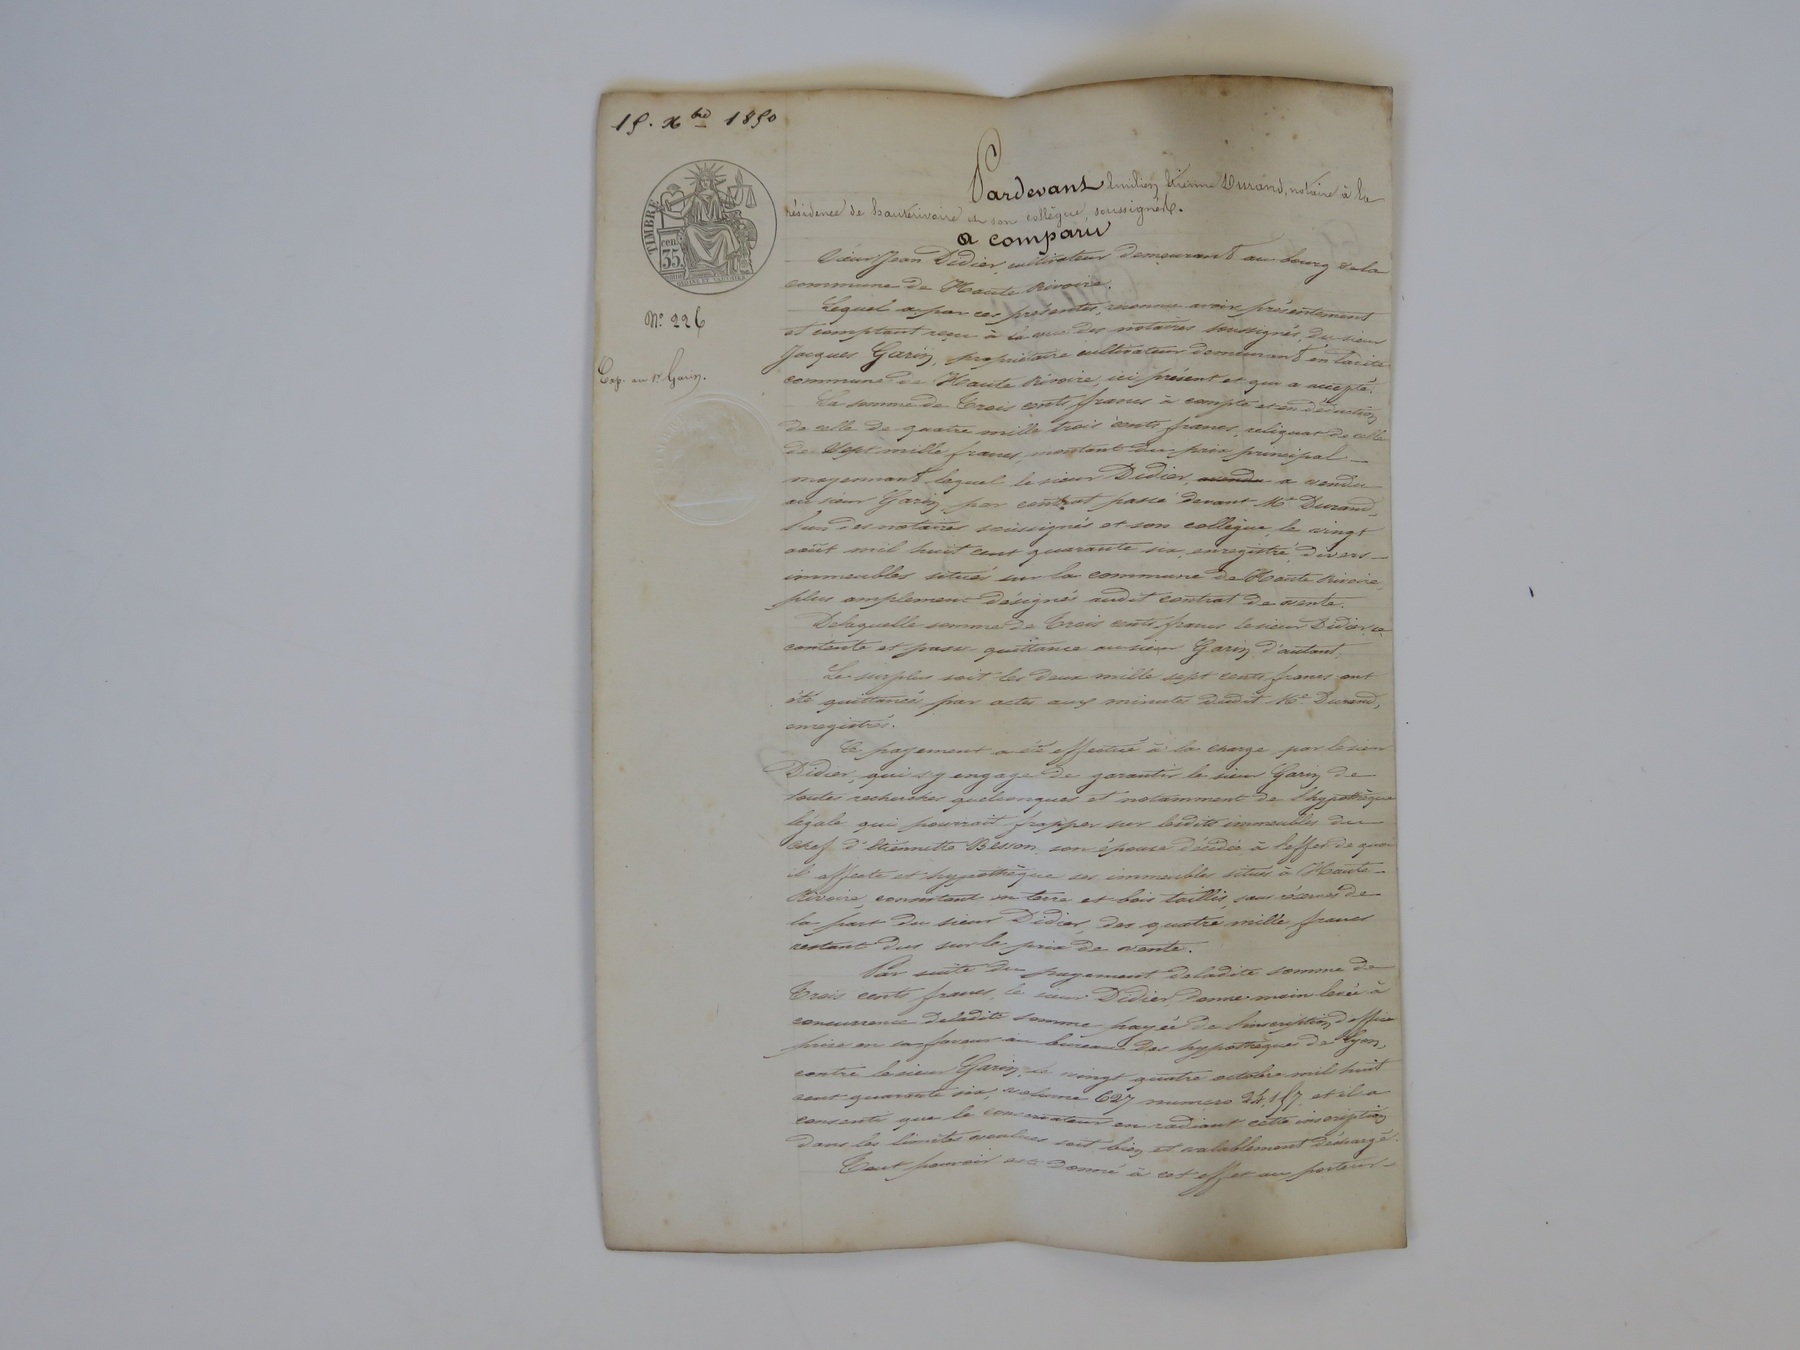 15. Xbre 1850
TIMBRE
cen.
35.
No 226
Exp. au Sr Garin.
Pardevant Emilien Etienne Durand, notaire à la
résidence de hauterivoire et son collègue, soussignés.
a comparu
Sieur Jean Didier, cultivateur demeurant au bourg de la
commune de Haute Rivoire.
Lequel a par ces présentes, reconnu avoir présentement
et comptant reçu à la vue des notaires soussignés, du sieur
Jacques Garin, propriétaire cultivateur demeurant en ladite
commune de Haute Rivoire, ici présent et qui a accepté.
La somme de Trois cents francs à compte et en déduction
de celle de quatre mille trois cents francs, reliquat de celle
de Sept mille francs, montant du prix principal
moyennant lequel le sieur Didier, a vendu
au sieur Garin par contrat passé devant Me Durand
l'un des notaires soussignés et son collègue, le vingt
août mil huit cent quarante six, enregistré, divers
immeubles situés sur la commune de Haute Rivoire,
plus amplement désignés audit contrat de vente.
De laquelle somme de Trois cents francs le sieur Didier se
contente et passe quittance au sieur Garin d'autant.
Le surplus soit les deux mille sept cents francs ont
été quittancés par actes aux minutes dudit Me Durand,
enregistrés.
Ce payement a été effectué à la charge par le sieur
Didier, qui s'y engage de garantir le sieur Garin de
toutes recherches quelconques et notamment de l'hypothèque
légale qui pourrait frapper sur lesdits immeubles du
chef d'Etiennette Besson son épouse décédée à l'effet de quoi
il affecte et hypothèque ses immeubles situés à Haute
Rivoire, consistant en terre et bois taillis, sous réserves de
la part du sieur Didier, des quatre mille francs
restant dus sur le prix de vente.
Par suite du payement de ladite somme de
Trois cents francs, le sieur Didier, donne main levée à
concurrence de ladite somme payée de l'inscription d'office
prise en sa faveur au bureau des hypothèques de Lyon,
contre le sieur Garin, le vingt quatre octobre mil huit
cent quarante six, volume 627 numéro 24.157. et il a
consenti que le conservateur en radiant cette inscription
dans les limites voulues soit bien et valablement déchargé.
Tout pouvoir est donné à cet effet au porteur